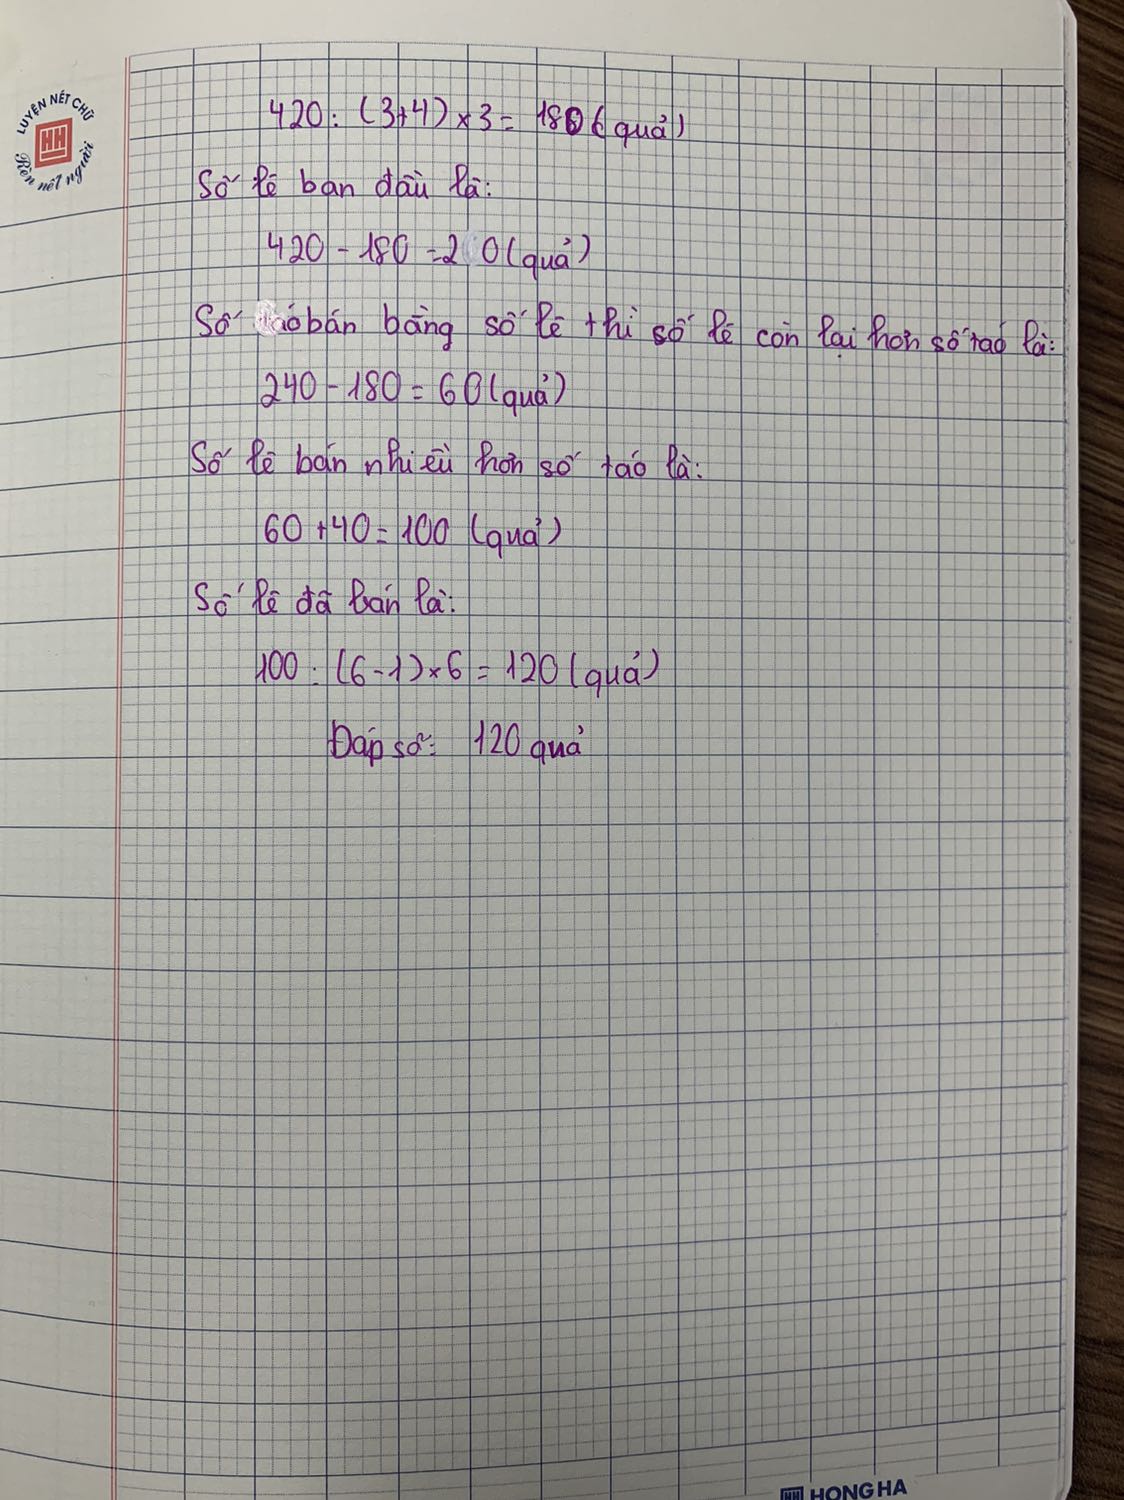 LUYỆN NÉT CHỮ
HH
Rèn nết người
420 : (3+4) × 3 = 180 (quả)
Số lê ban đầu là:
420 - 180 = 2 0 (quả)
Số táo bán bằng số lê thì số lê còn lại hơn số táo là:
240 - 180 = 60 (quả)
Số lê bán nhiều hơn số táo là:
60 + 40 = 100 (quả)
Số lê đã bán là:
100 : (6 - 1) × 6 = 120 (quả)
Đáp số: 120 quả
HH HONG HA